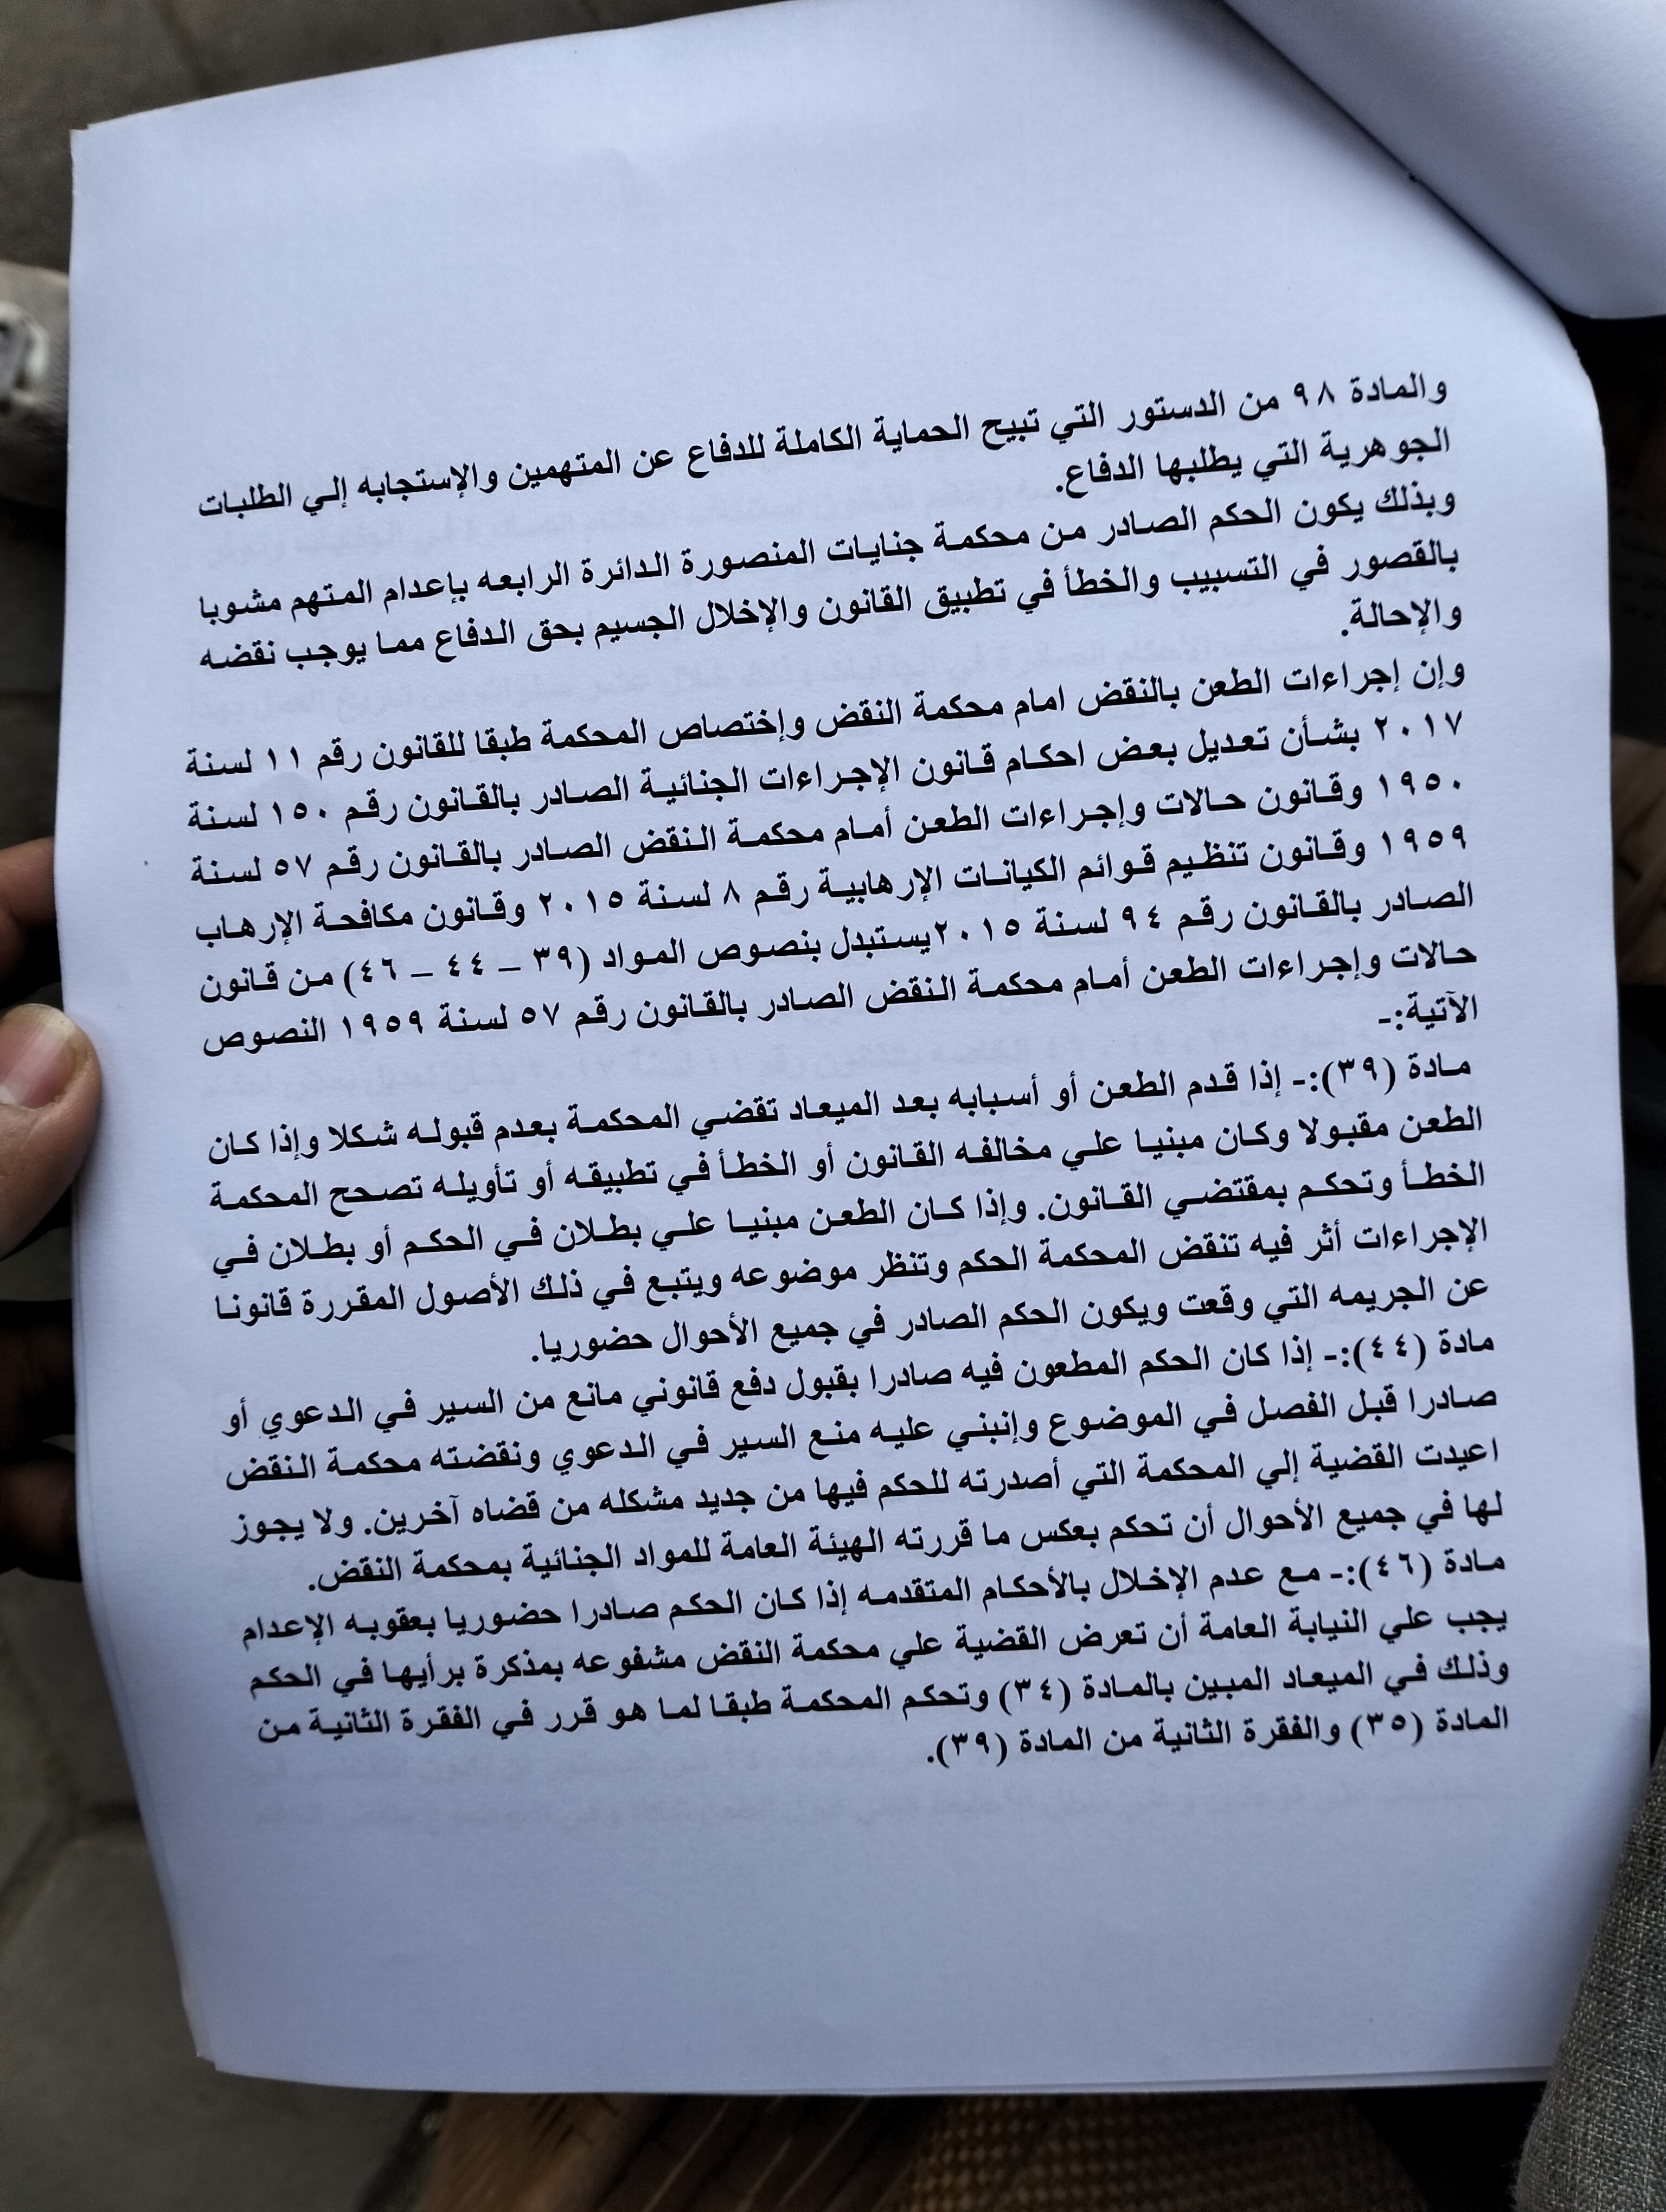 والمادة ٩٨ من الدستور التي تبيح الحماية الكاملة للدفاع عن المتهمين والإستجابه إلي الطلبات
الجوهرية التي يطلبها الدفاع.
وبذلك يكون الحكم الصادر من محكمة جنايات المنصورة الدائرة الرابعه بإعدام المتهم مشوبا
بالقصور في التسبيب والخطأ في تطبيق القانون والإخلال الجسيم بحق الدفاع مما يوجب نقضه
والإحالة.
وإن إجراءات الطعن بالنقض امام محكمة النقض وإختصاص المحكمة طبقا للقانون رقم ١١ لسنة
٢٠١٧ بشأن تعديل بعض احكام قانون الإجراءات الجنائية الصادر بالقانون رقم ١٥٠ لسنة
١٩٥٠ وقانون حالات وإجراءات الطعن أمام محكمة النقض الصادر بالقانون رقم ٥٧ لسنة
١٩٥٩ وقانون تنظيم قوائم الكيانات الإرهابية رقم ٨ لسنة ٢٠١٥ وقانون مكافحة الإرهاب
الصادر بالقانون رقم ٩٤ لسنة ٢٠١٥يستبدل بنصوص المواد (٣٩ – ٤٤ – ٤٦) من قانون
حالات وإجراءات الطعن أمام محكمة النقض الصادر بالقانون رقم ٥٧ لسنة ١٩٥٩ النصوص
الآتية:-
مادة (٣٩):- إذا قدم الطعن أو أسبابه بعد الميعاد تقضي المحكمة بعدم قبوله شكلا وإذا كان
الطعن مقبولا وكان مبنيا علي مخالفه القانون أو الخطأ في تطبيقه أو تأويله تصحح المحكمة
الخطأ وتحكم بمقتضي القانون. وإذا كان الطعن مبنيا علي بطلان في الحكم أو بطلان في
الإجراءات أثر فيه تنقض المحكمة الحكم وتنظر موضوعه ويتبع في ذلك الأصول المقررة قانونا
عن الجريمه التي وقعت ويكون الحكم الصادر في جميع الأحوال حضوريا.
مادة (٤٤):- إذا كان الحكم المطعون فيه صادرا بقبول دفع قانوني مانع من السير في الدعوي أو
صادرا قبل الفصل في الموضوع وإنبني عليه منع السير في الدعوي ونقضته محكمة النقض
اعيدت القضية إلي المحكمة التي أصدرته للحكم فيها من جديد مشكله من قضاه آخرين. ولا يجوز
لها في جميع الأحوال أن تحكم بعكس ما قررته الهيئة العامة للمواد الجنائية بمحكمة النقض.
مادة (٤٦):- مع عدم الإخلال بالأحكام المتقدمه إذا كان الحكم صادرا حضوريا بعقوبه الإعدام
يجب علي النيابة العامة أن تعرض القضية علي محكمة النقض مشفوعه بمذكرة برأيها في الحكم
وذلك في الميعاد المبين بالمادة (٣٤) وتحكم المحكمة طبقا لما هو قرر في الفقرة الثانية من
المادة (٣٥) والفقرة الثانية من المادة (٣٩).